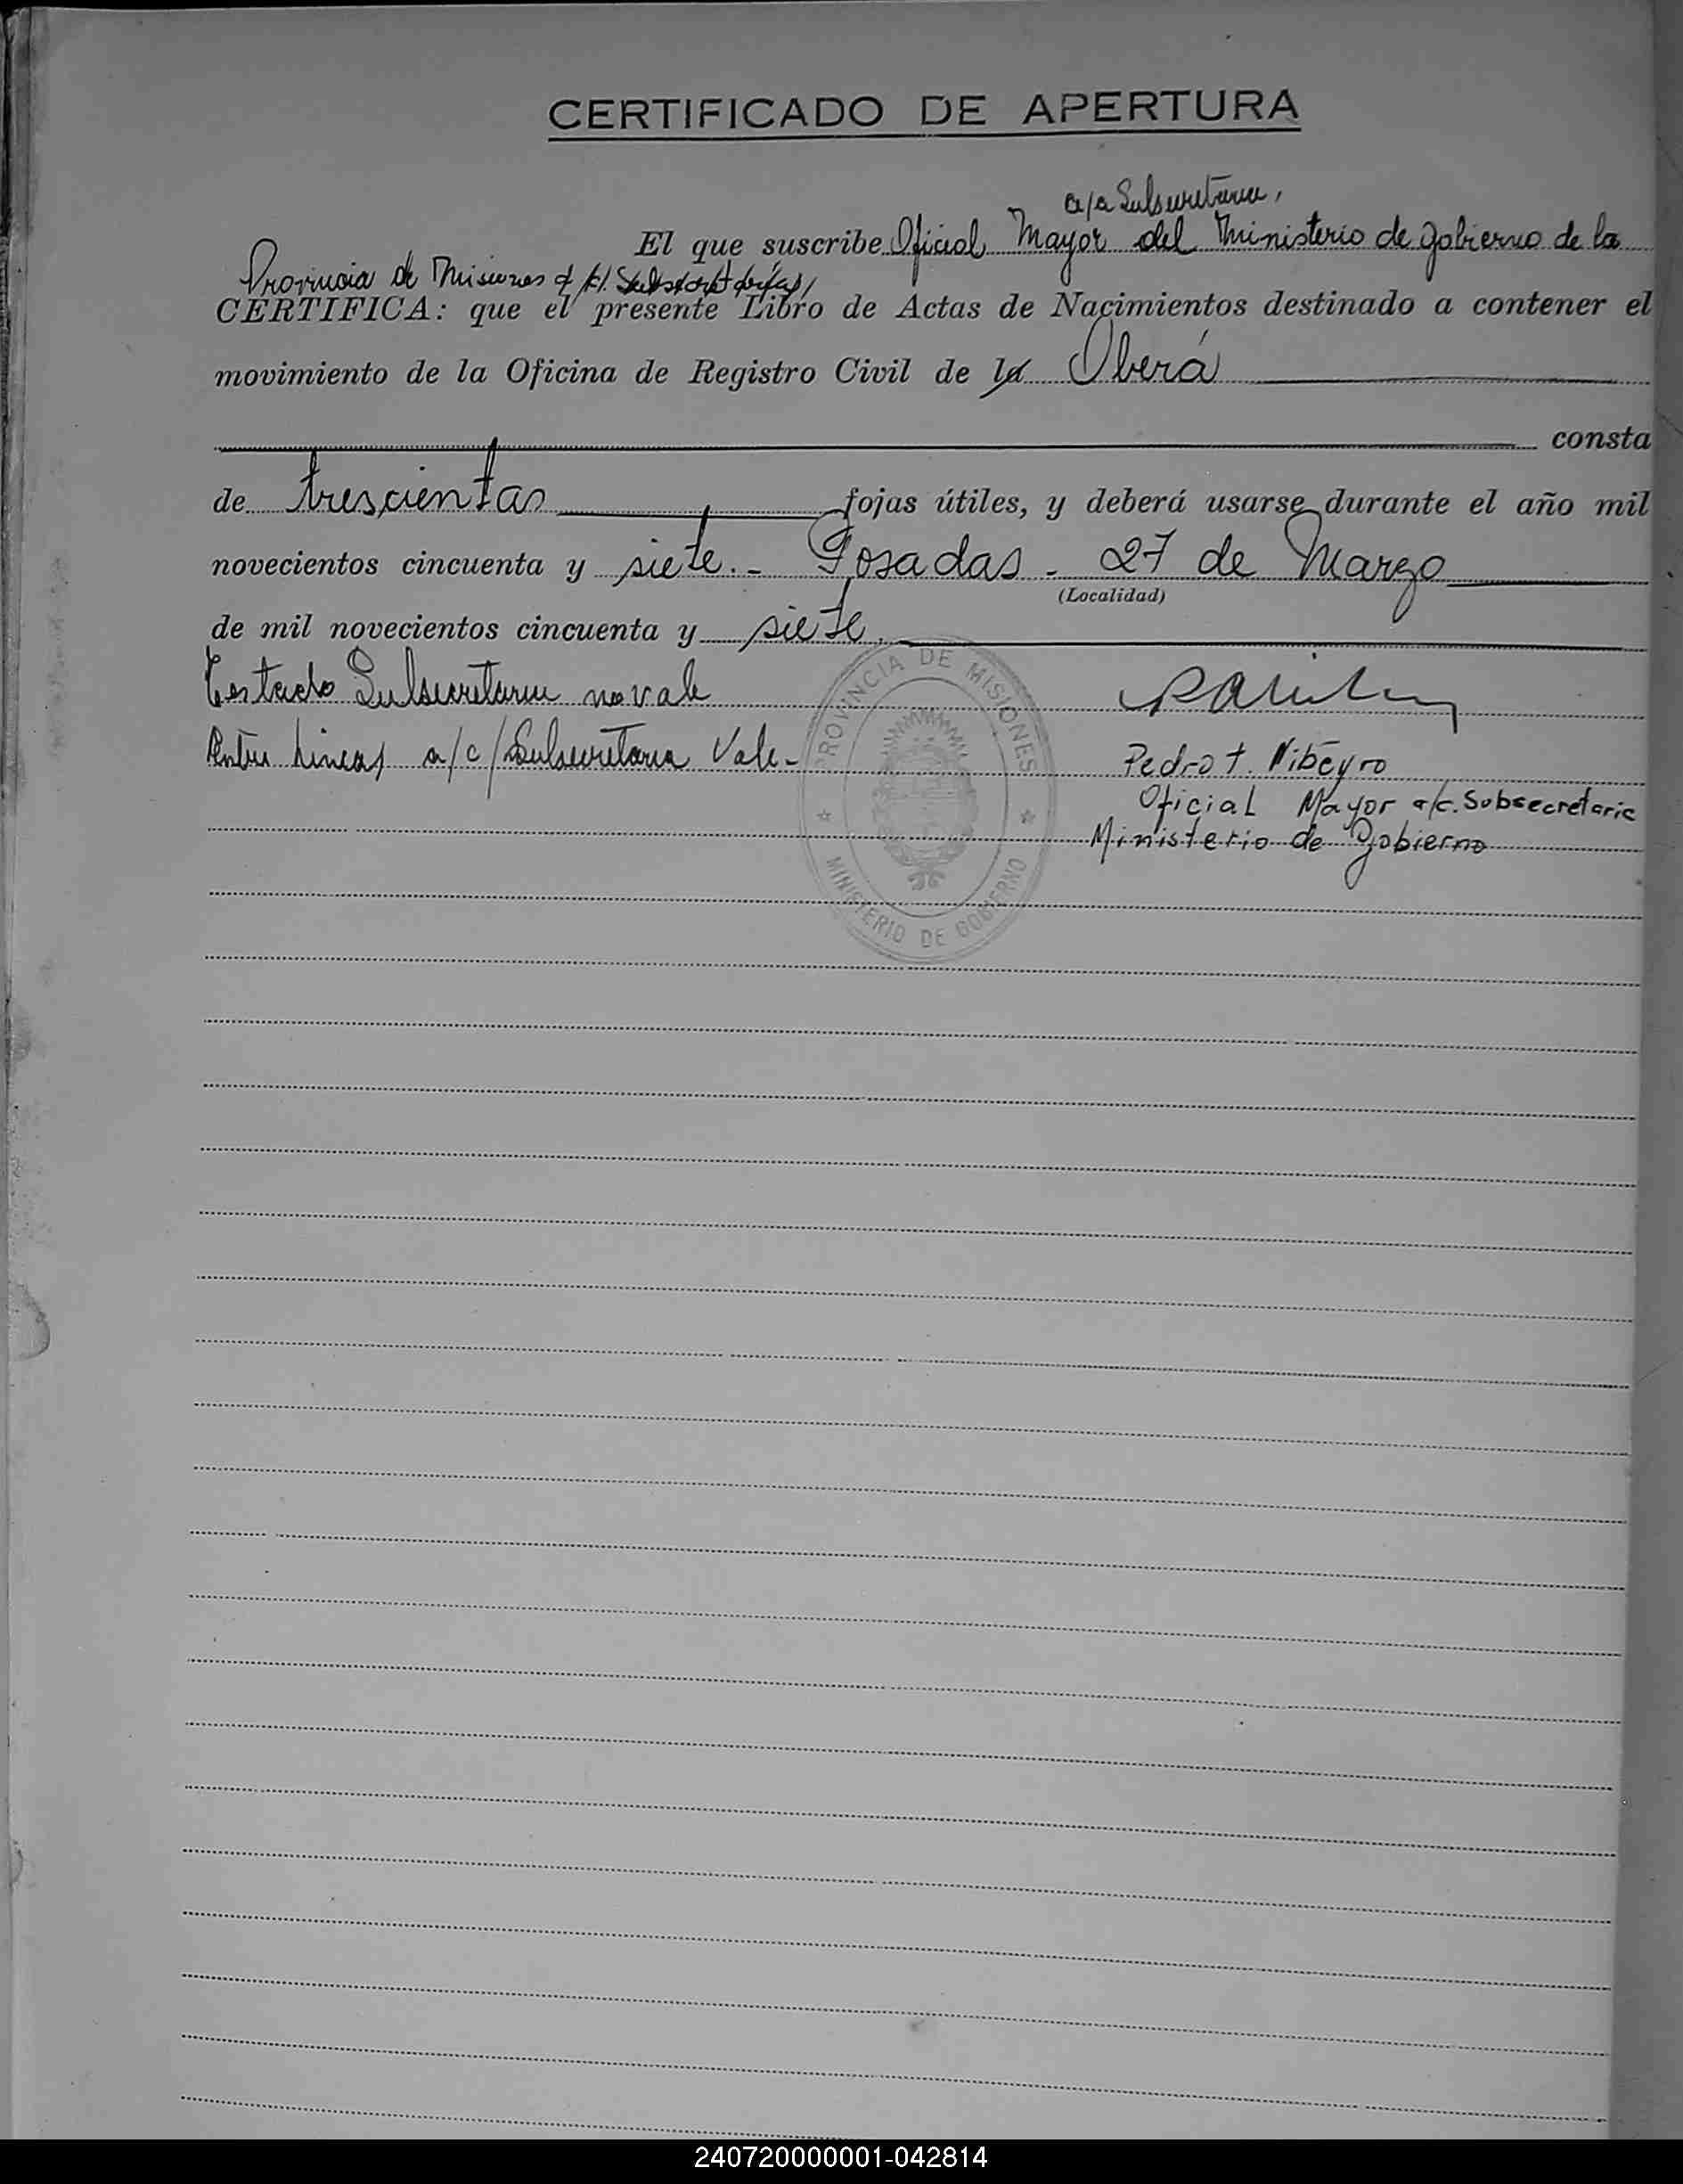 CERTIFICADO DE APERTURA
a/c Subsecretaria,
El que suscribe Oficial Mayor del Ministerio de Gobierno de la
Provincia de Misiones
CERTIFICA: que el presente Libro de Actas de Nacimientos destinado a contener el
movimiento de la Oficina de Registro Civil de la Oberá
consta
de trescientas fojas útiles, y deberá usarse durante el año mil
novecientos cincuenta y siete.- Posadas - 27 de Marzo
(Localidad)
de mil novecientos cincuenta y siete.
Testado Subsecretaria no vale
Entre Lineas a/c/Subsecretaria Vale-
PROVINCIA DE MISIONES
MINISTERIO DE GOBIERNO
Pedro
Oficial Mayor a/c. Subsecretaria
Ministerio de Gobierno
240720000001-042814